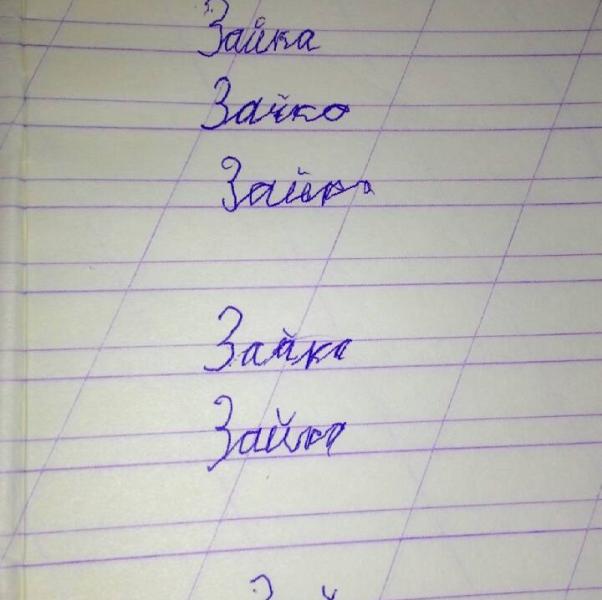 Зайка
Зайко
Зайка
Зайка
Зайка